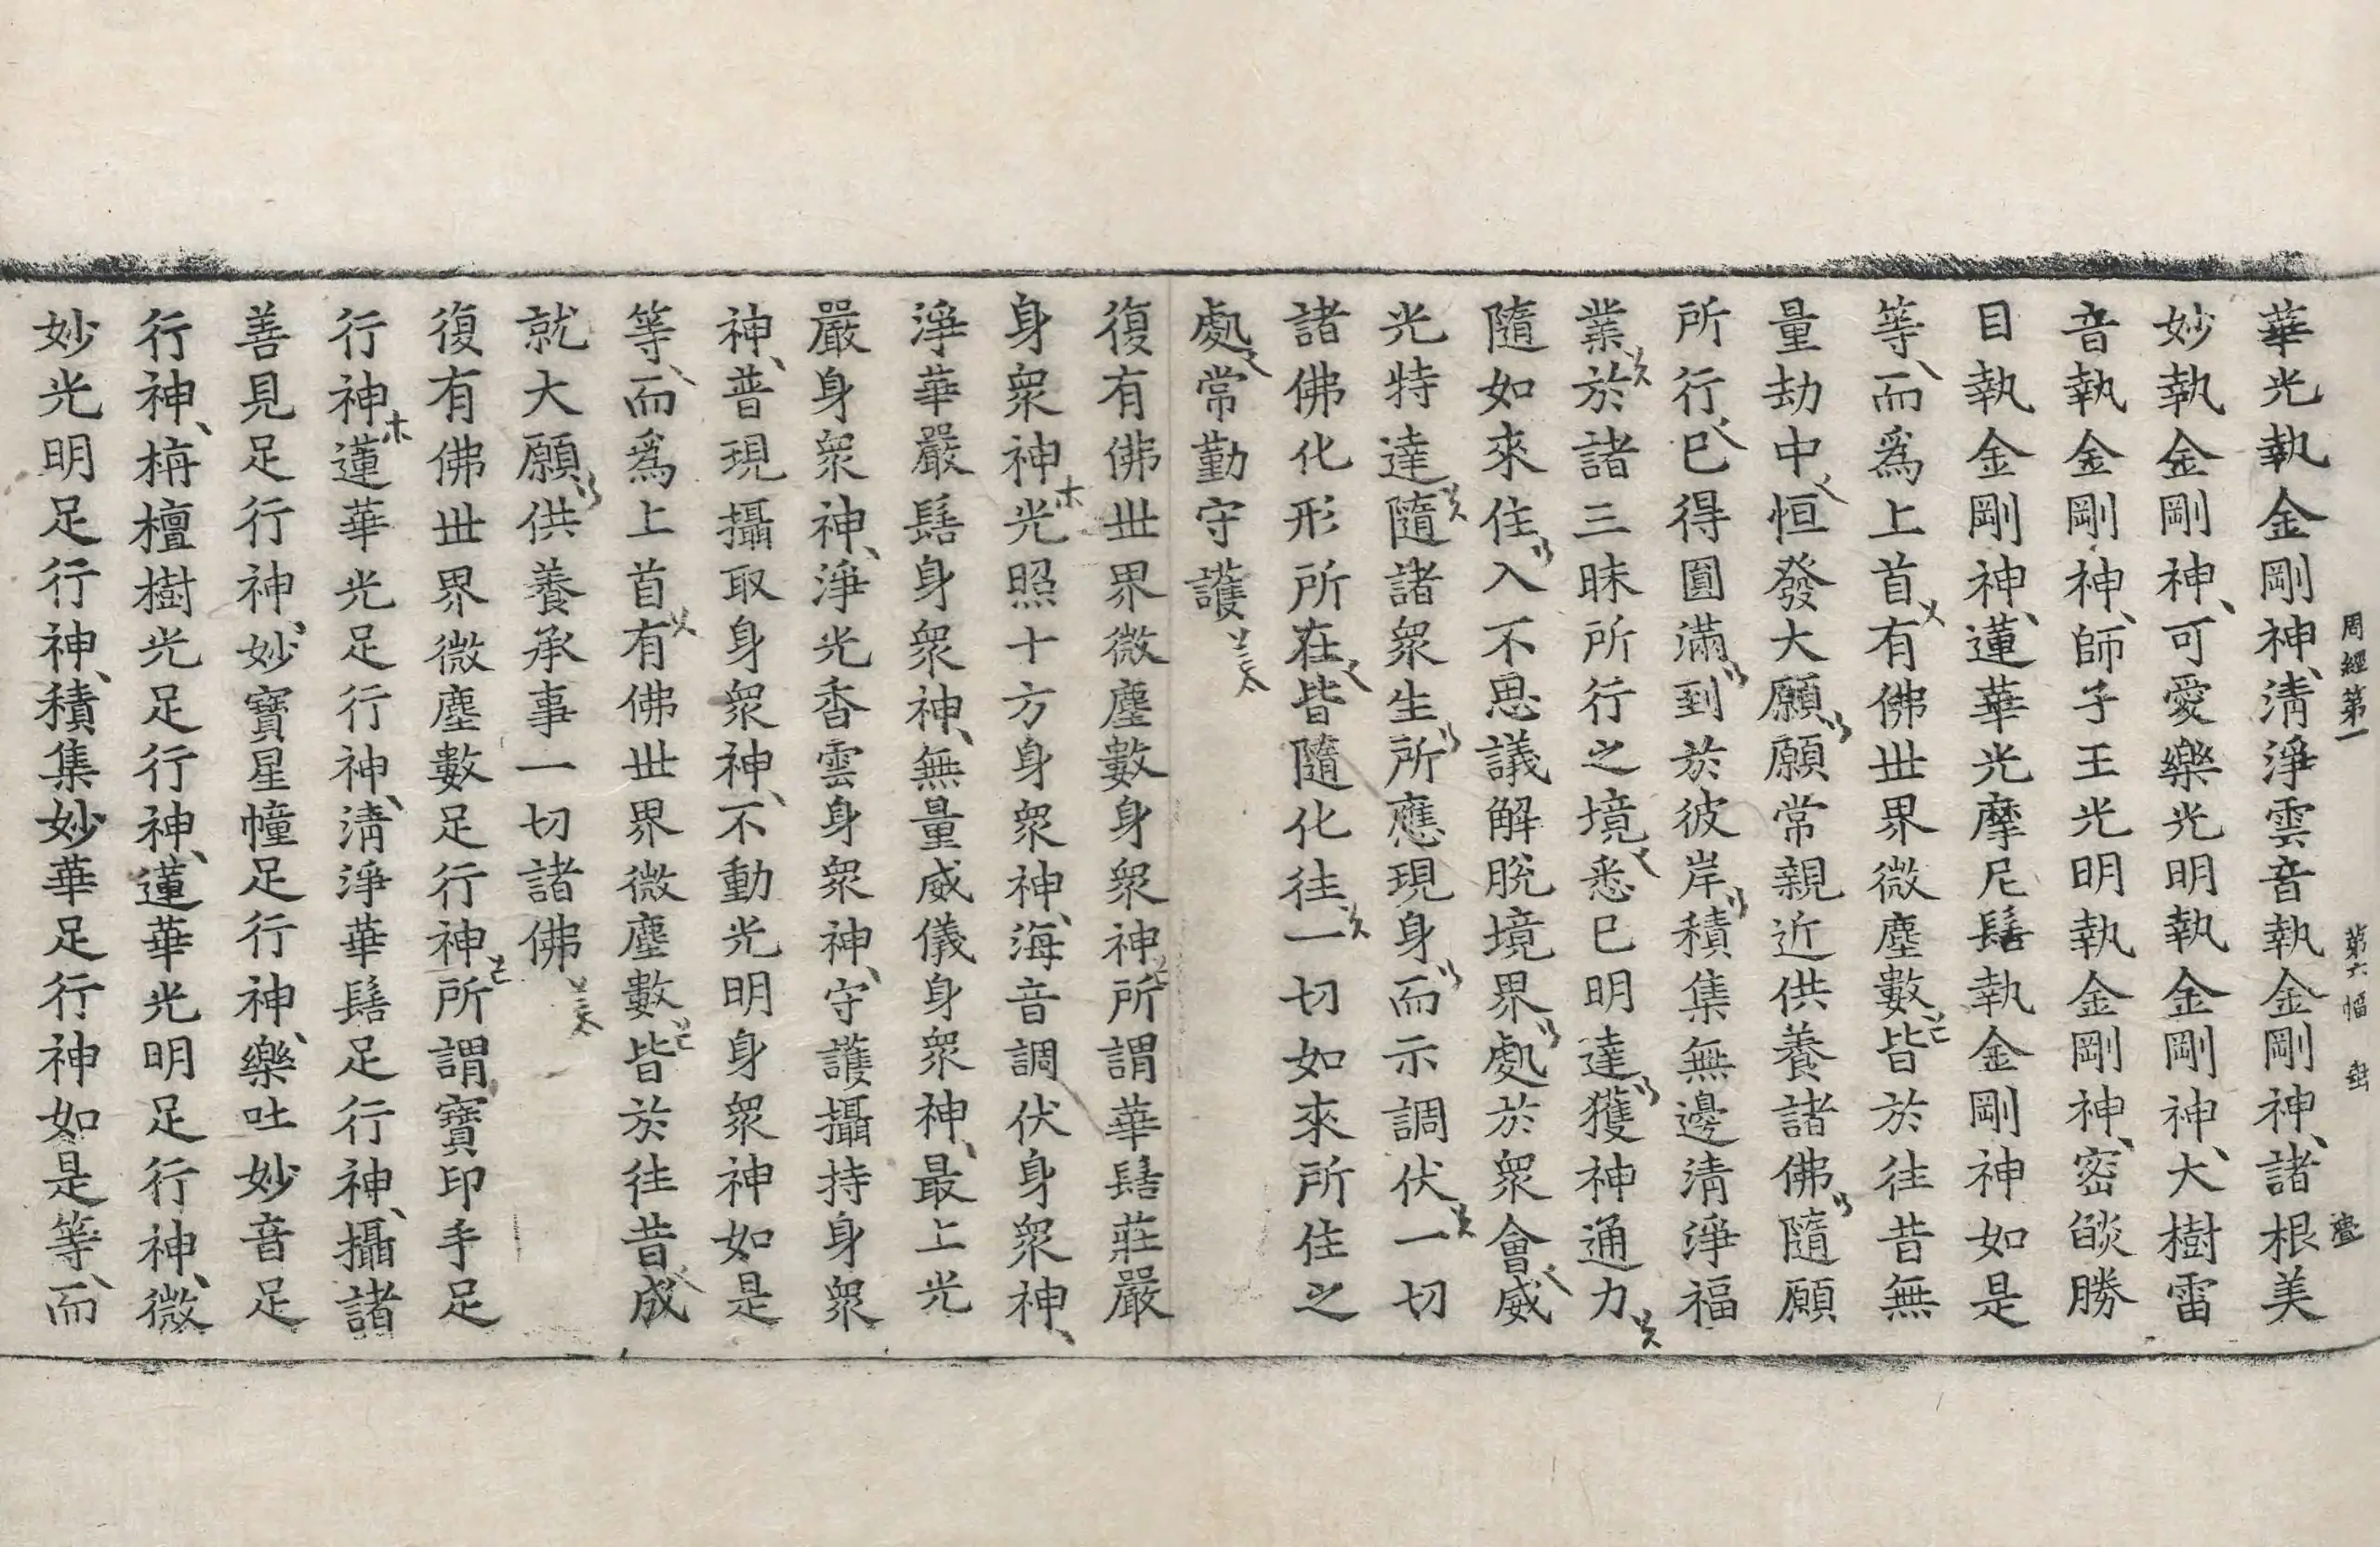 周經第一 第六幅
華光執金剛神清淨雲音執金剛神諸根美
妙執金剛神可愛樂光明執金剛神大樹雷
音執金剛神師子王光明執金剛神密㷔勝
目執金剛神蓮華光摩尼髻執金剛神如是
等而爲上首有佛世界微塵數皆於往昔無
量劫中恒發大願願常親近供養諸佛隨願
所行已得圓滿到於彼岸積集無邊清淨福
業於諸三昧所行之境悉已明達獲神通力
隨如來住入不思議解脫境界處於衆會威
光特達隨諸衆生所應現身而示調伏一切
諸佛化形所在皆隨化往一切如來所住之
處常勤守護
復有佛世界微塵數身衆神所謂華髻莊嚴
身衆神光照十方身衆神海音調伏身衆神
淨華嚴髻身衆神無量威儀身衆神最上光
嚴身衆神淨光香雲身衆神守護攝持身衆
神普現攝取身衆神不動光明身衆神如是
等而爲上首有佛世界微塵數皆於往昔成
就大願供養承事一切諸佛
復有佛世界微塵數足行神所謂寶印手足
行神蓮華光足行神清淨華髻足行神攝諸
善見足行神妙寶星幢足行神樂吐妙音足
行神栴檀樹光足行神蓮華光明足行神微
妙光明足行神積集妙華足行神如是等而